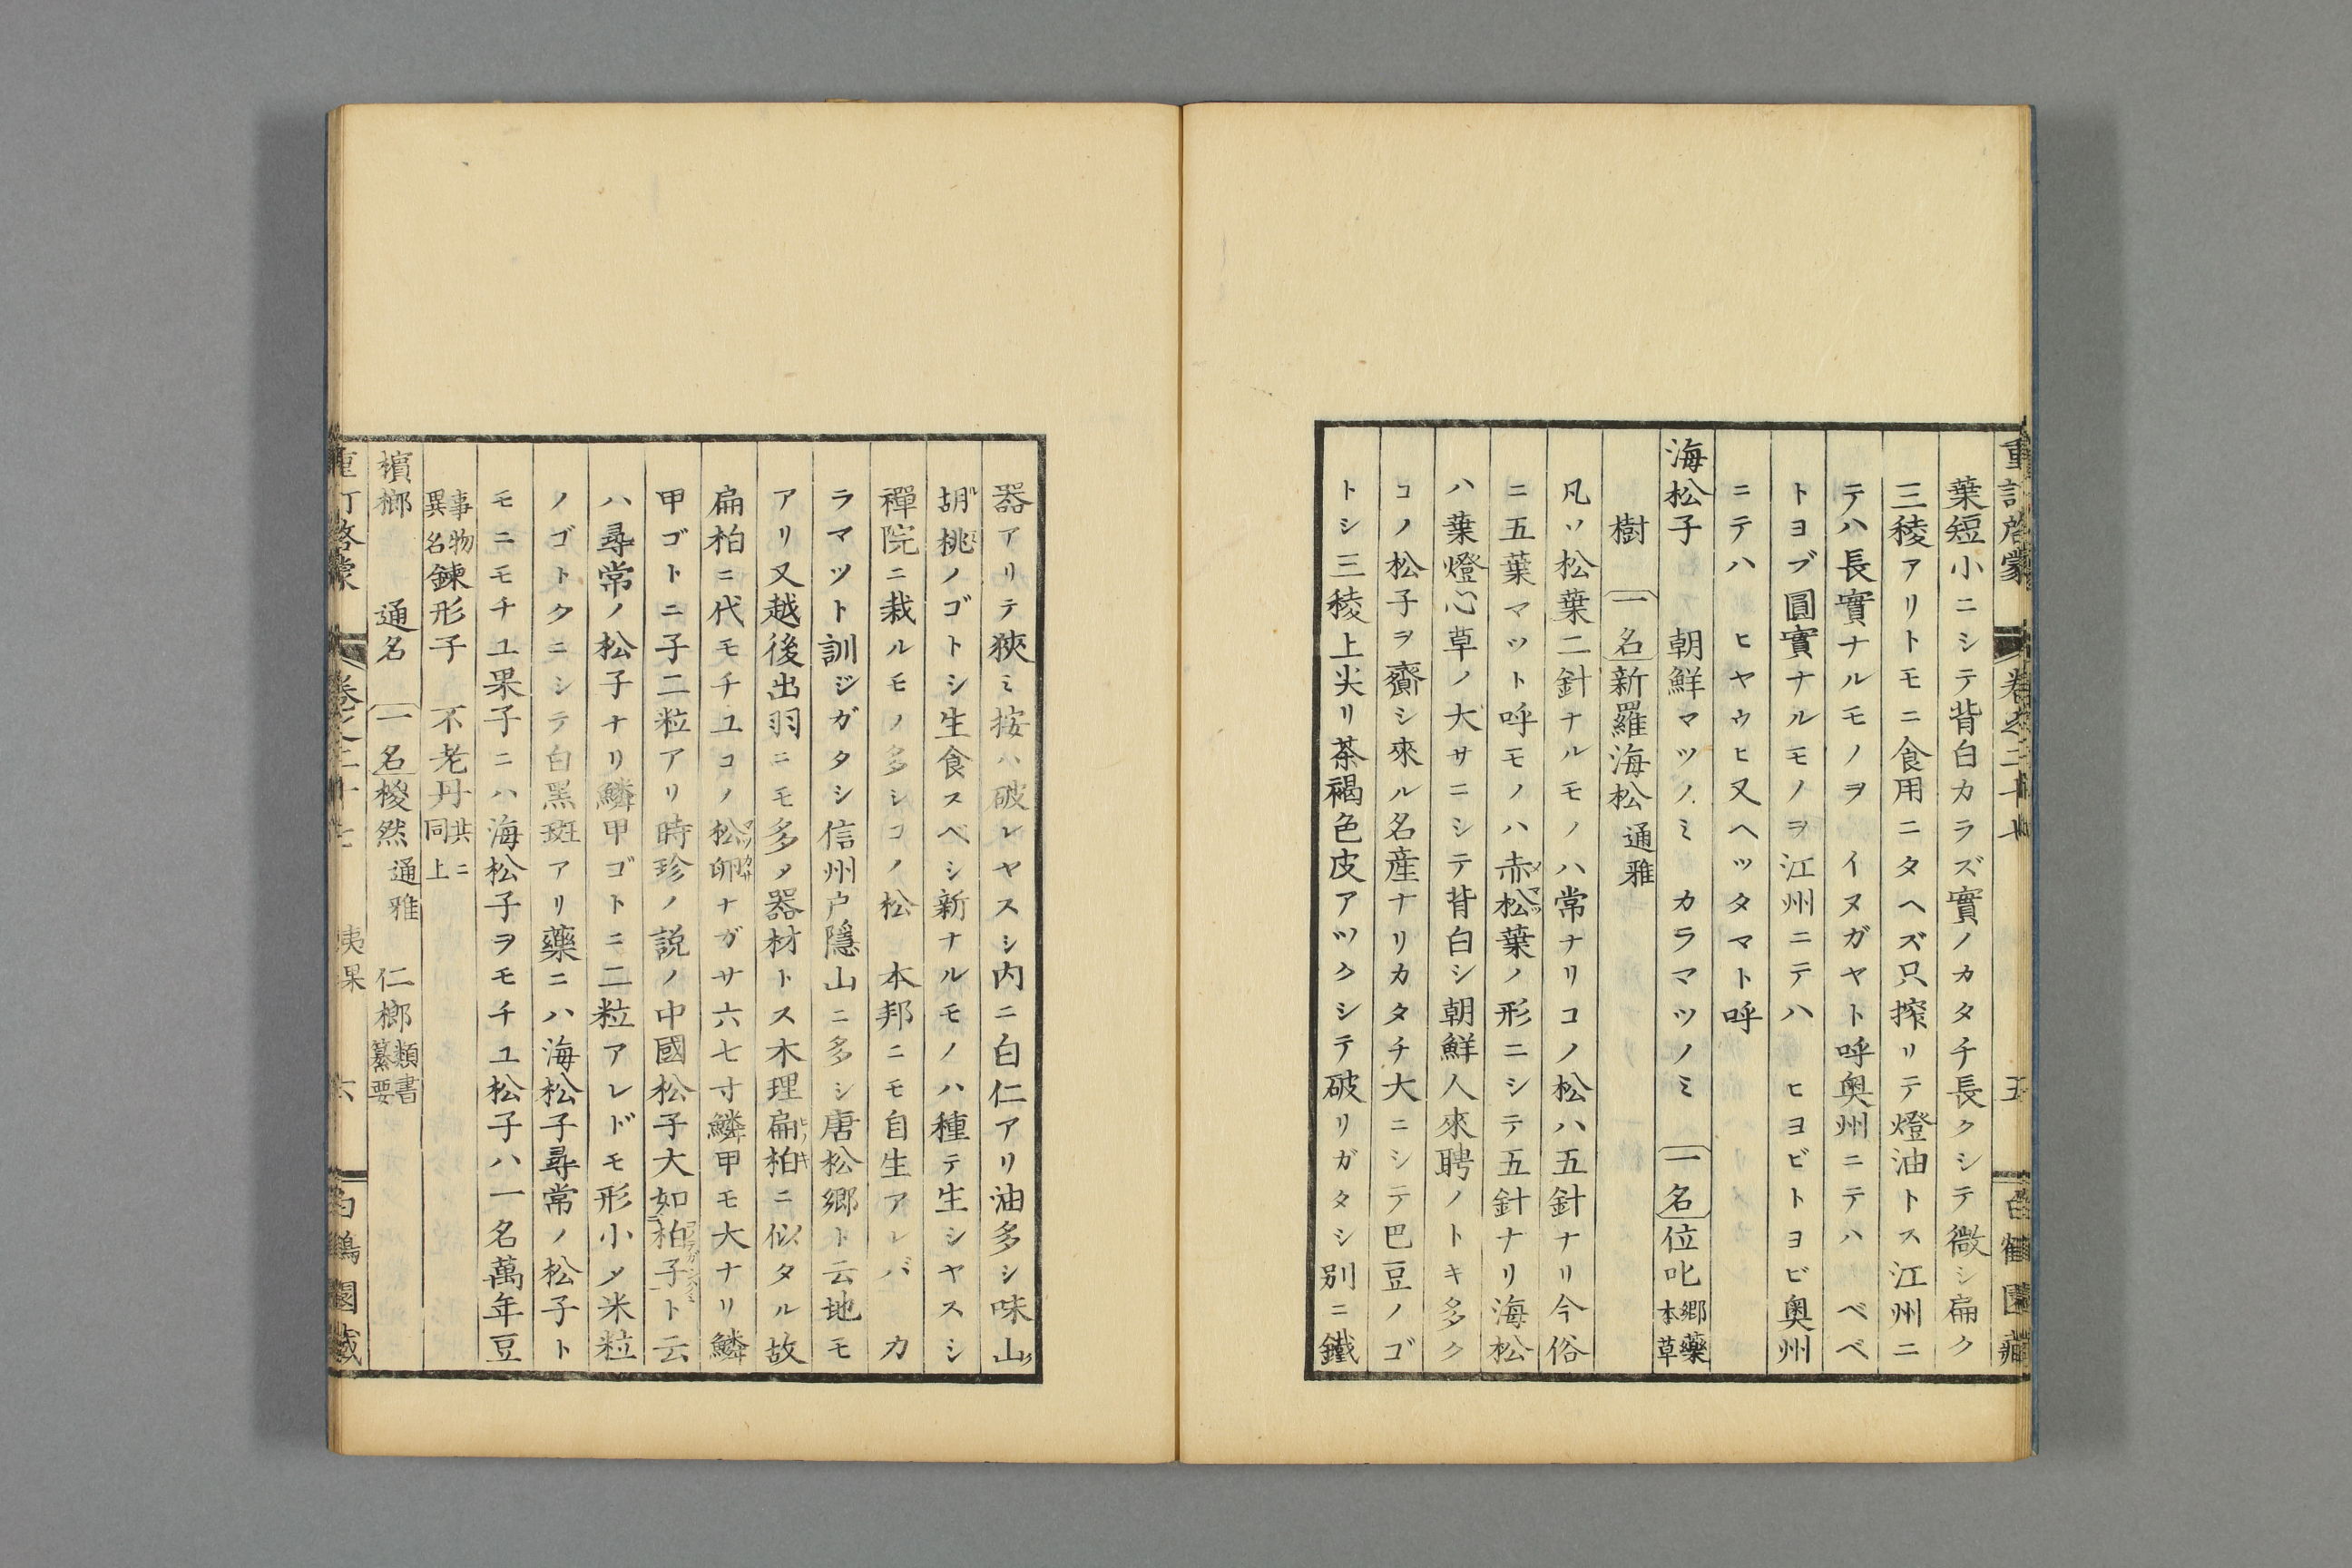 葉短小ニシテ背白カラズ實ノカタチ長クシテ微シ扁ク
三稜アリトモニ食用ニタヘズ只搾リテ燈油トス江州ニ
テハ長實ナルモノヲ イヌガヤト呼奥州ニテハ ベベ
トヨブ圓實ナルモノヲ江州ニテハ ヒヨビトヨビ奥州
ニテハ ヒヤウヒ又ヘツタマト呼
海松子 朝鮮マツノミ カラマツノミ 一名 位叱 郷藥本草
樹 一名 新羅海松 通雅
凡ソ松葉二針ナルモノハ常ナリコノ松ハ五針ナリ今俗
ニ五葉マツト呼モノハ赤松葉ノ形ニシテ五針ナリ海松
ハ葉燈心草ノ大サニシテ背白シ朝鮮人來聘ノトキ多ク
コノ松子ヲ齎シ來ル名産ナリカタチ大ニシテ巴豆ノゴ
トシ三稜上尖リ茶褐色皮アツクシテ破リガタシ別ニ鐵
器アリテ狹ミ按ハ破レヤスシ内ニ白仁アリ油多シ味山
胡桃ノゴトシ生食スベシ新ナルモノハ種テ生シヤスシ
禪院ニ栽ルモノ多シコノ松 本邦ニモ自生アレバ カ
ラマツト訓ジガタシ信州戸隱山ニ多シ唐松郷ト云地モ
アリ又越後出羽ニモ多タ器材トス木理扁柏ニ似タル故
扁柏ニ代モチユコノ松卵ナガサ六七寸鱗甲モ大ナリ鱗
甲ゴトニ子二粒アリ時珍ノ説ノ中國松子大如柏子ト云
ハ尋常ノ松子ナリ鱗甲ゴトニ二粒アレドモ形小メ米粒
ノゴトクニシテ白黒斑アリ藥ニハ海松子尋常ノ松子ト
モニモチユ果子ニハ海松子ヲモチユ松子ハ一名萬年豆
事物異名 錬形子 不老丹 共ニ同上
檳榔 通名 一名 椶然 通雅 仁榔 類書纂要